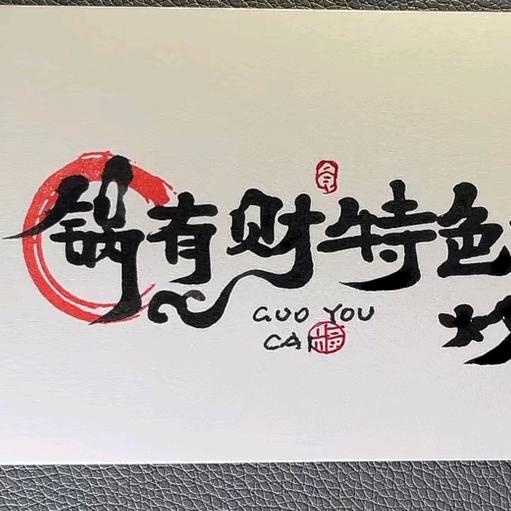 锅有财特色
GUO YOU
CAI
炒